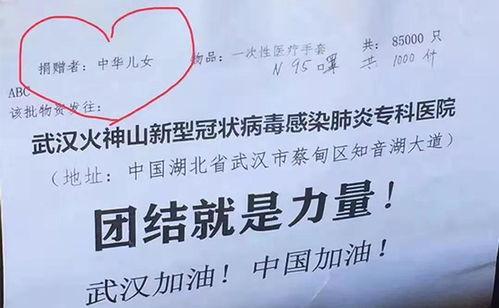 捐赠者：中华儿女 物品：一次性医疗手套 共：85000 只
N95口罩 共 1000 件
ABC
该批物资发往：
武汉火神山新型冠状病毒感染肺炎专科医院
（地址：中国湖北省武汉市蔡甸区知音湖大道）
团结就是力量！
武汉加油！中国加油！